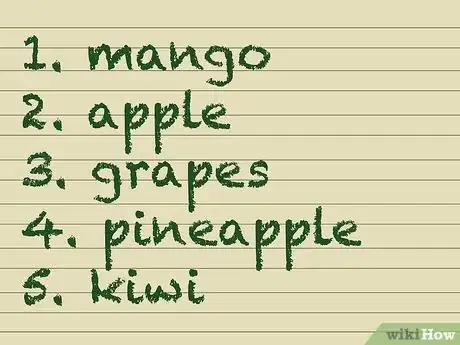 1. mango
2. apple
3. grapes
4. pineapple
5. kiwi
wikiHow